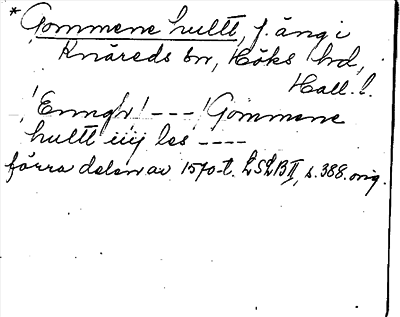 * Gommene hultt, f. äng i
Knäreds sn, Höks hd,
Hall. l.
! Enngh ! --- ! Gommene
hultt iiij les ----
förra delen av 1570-t. LSLB II, s. 388. orig.